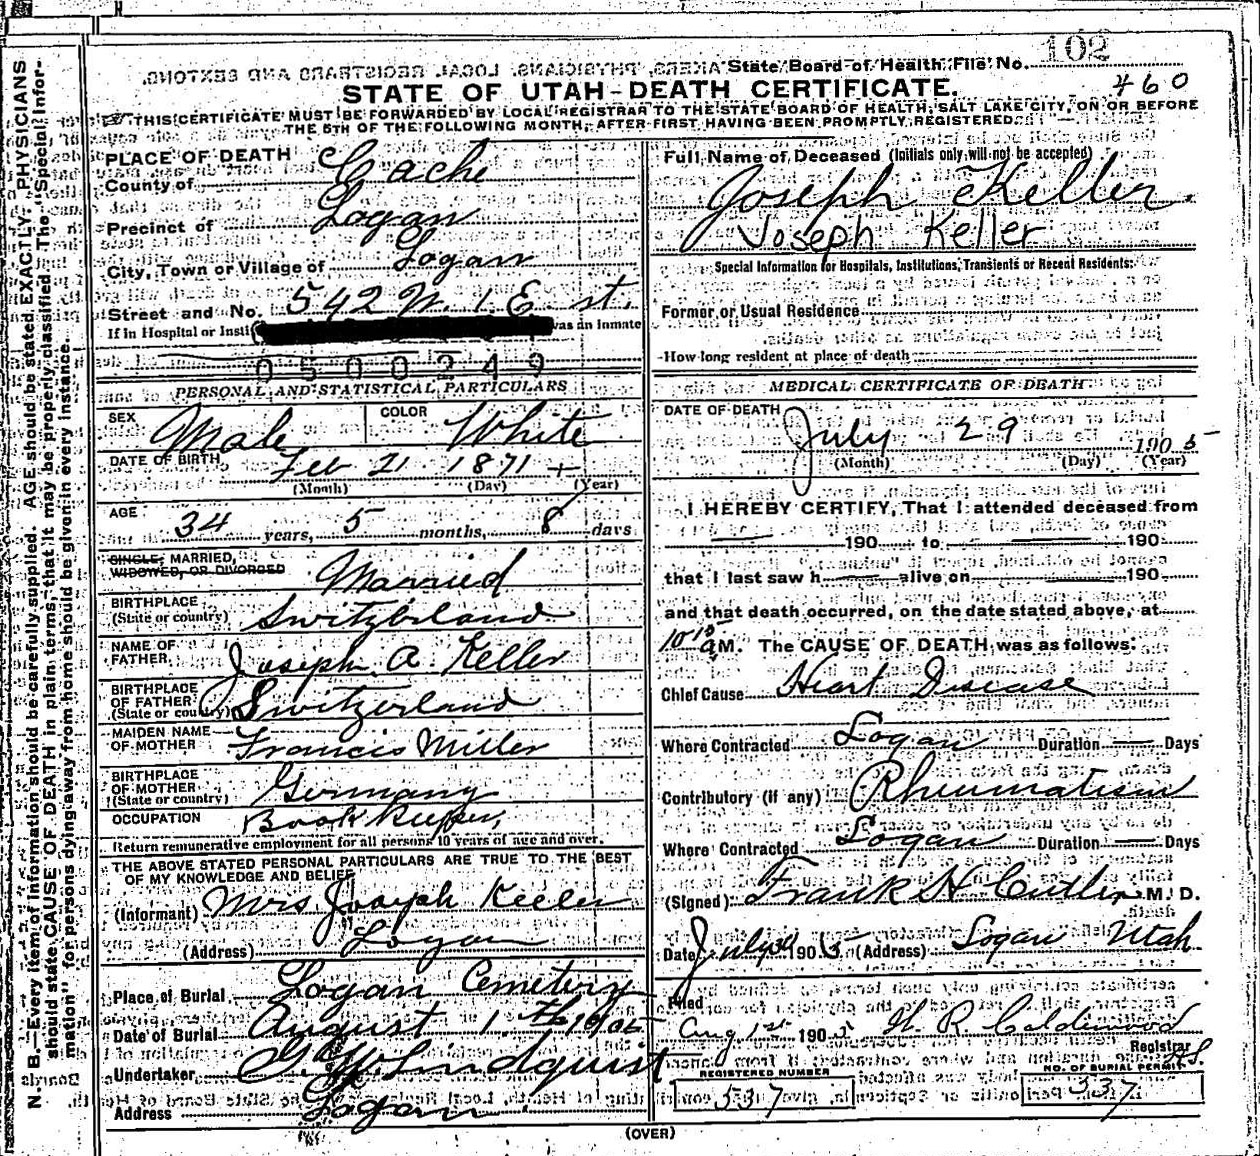 N. B.—Every item of information should be carefully supplied. AGE should be stated EXACTLY. PHYSICIANS
should state CAUSE OF DEATH in plain terms, that it may be properly classified. The "Special Infor-
mation" for persons dying away from home should be given in every instance.
State Board of Health File No. 102
460
STATE OF UTAH-DEATH CERTIFICATE.
THIS CERTIFICATE MUST BE FORWARDED BY LOCAL REGISTRAR TO THE STATE BOARD OF HEALTH, SALT LAKE CITY, ON OR BEFORE
THE 5TH OF THE FOLLOWING MONTH, AFTER FIRST HAVING BEEN PROMPTLY REGISTERED.
PLACE OF DEATH
County of Cache
Precinct of Logan
City, Town or Village of Logan
Street and No. 542 N. 1. E st.
If in Hospital or Insti was an Inmate
0500249
PERSONAL AND STATISTICAL PARTICULARS
SEX Male COLOR White
DATE OF BIRTH Feb 21 1871 +
(Month) (Day) (Year)
AGE 34 years, 5 months, 8 days
SINGLE, MARRIED,
WIDOWED, OR DIVORCED Married
BIRTHPLACE
(State or country) Switzerland
NAME OF
FATHER Joseph A. Keller
BIRTHPLACE
OF FATHER
(State or country) Switzerland
MAIDEN NAME
OF MOTHER Francis Miller
BIRTHPLACE
OF MOTHER
(State or country) Germany
OCCUPATION Book Keeper,
Return remunerative employment for all persons 10 years of age and over.
THE ABOVE STATED PERSONAL PARTICULARS ARE TRUE TO THE BEST
OF MY KNOWLEDGE AND BELIEF
(Informant) Mrs Joseph Keller
(Address) Logan
Place of Burial Logan Cemetery
Date of Burial August 1. th 1905
Undertaker G. W. Lindquist
Address Logan.
Full Name of Deceased (Initials only will not be accepted)
Joseph Keller.
Joseph Keller
Special Information for Hospitals, Institutions, Transients or Recent Residents:
Former or Usual Residence
How long resident at place of death
MEDICAL CERTIFICATE OF DEATH
DATE OF DEATH
July 29 1905
(Month) (Day) (Year)
I HEREBY CERTIFY, That I attended deceased from
190 to 190
that I last saw h alive on 190
and that death occurred, on the date stated above, at
10 15 a M. The CAUSE OF DEATH was as follows:
Chief Cause Heart Disease
Where Contracted Logan Duration — Days
Contributory (if any) Rheumatism
Where Contracted Logan Duration — Days
(Signed) Frank H Cutler M. D.
Date July 30 1905 (Address) Logan Utah
Filed
Aug 1st 1905 H. R. Calderwood
Registrar
REGISTERED NUMBER
337
NO. OF BURIAL PERMIT
337
(OVER)